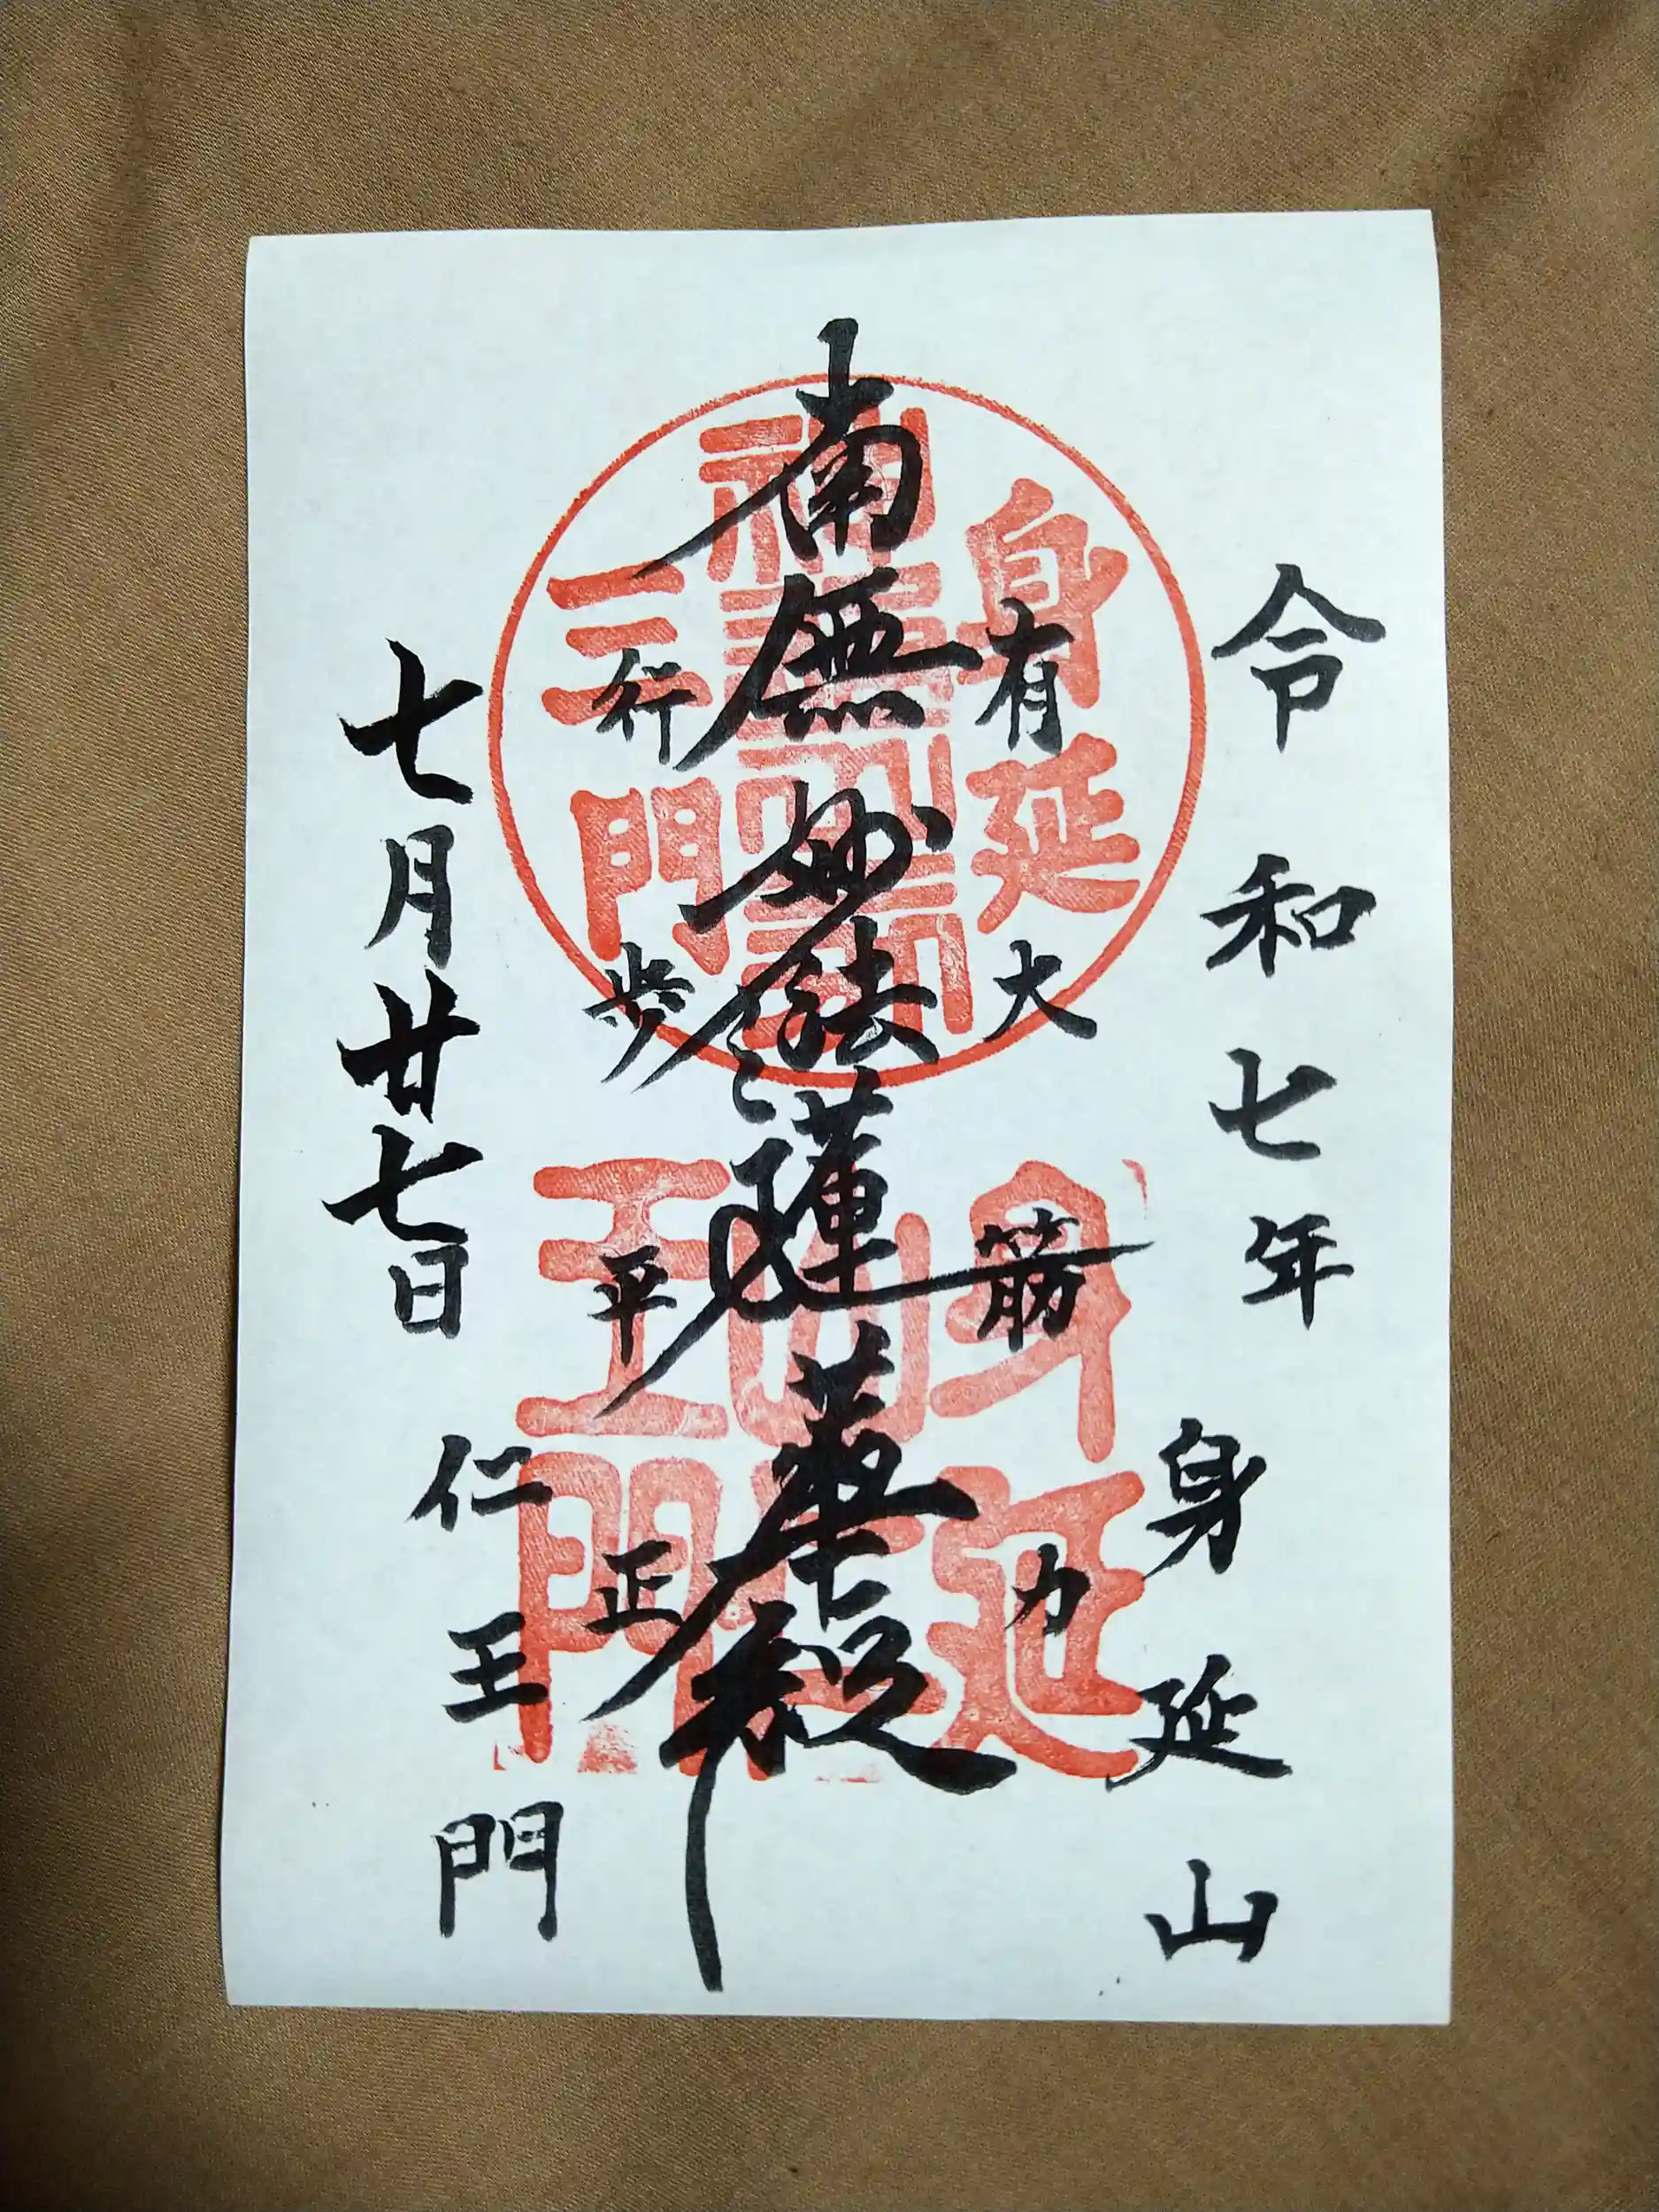 令和七年
身延山
有大筋力
南無妙法蓮華経
行歩平正
七月廿七日
仁王門
身延
三門
身延
山
王門